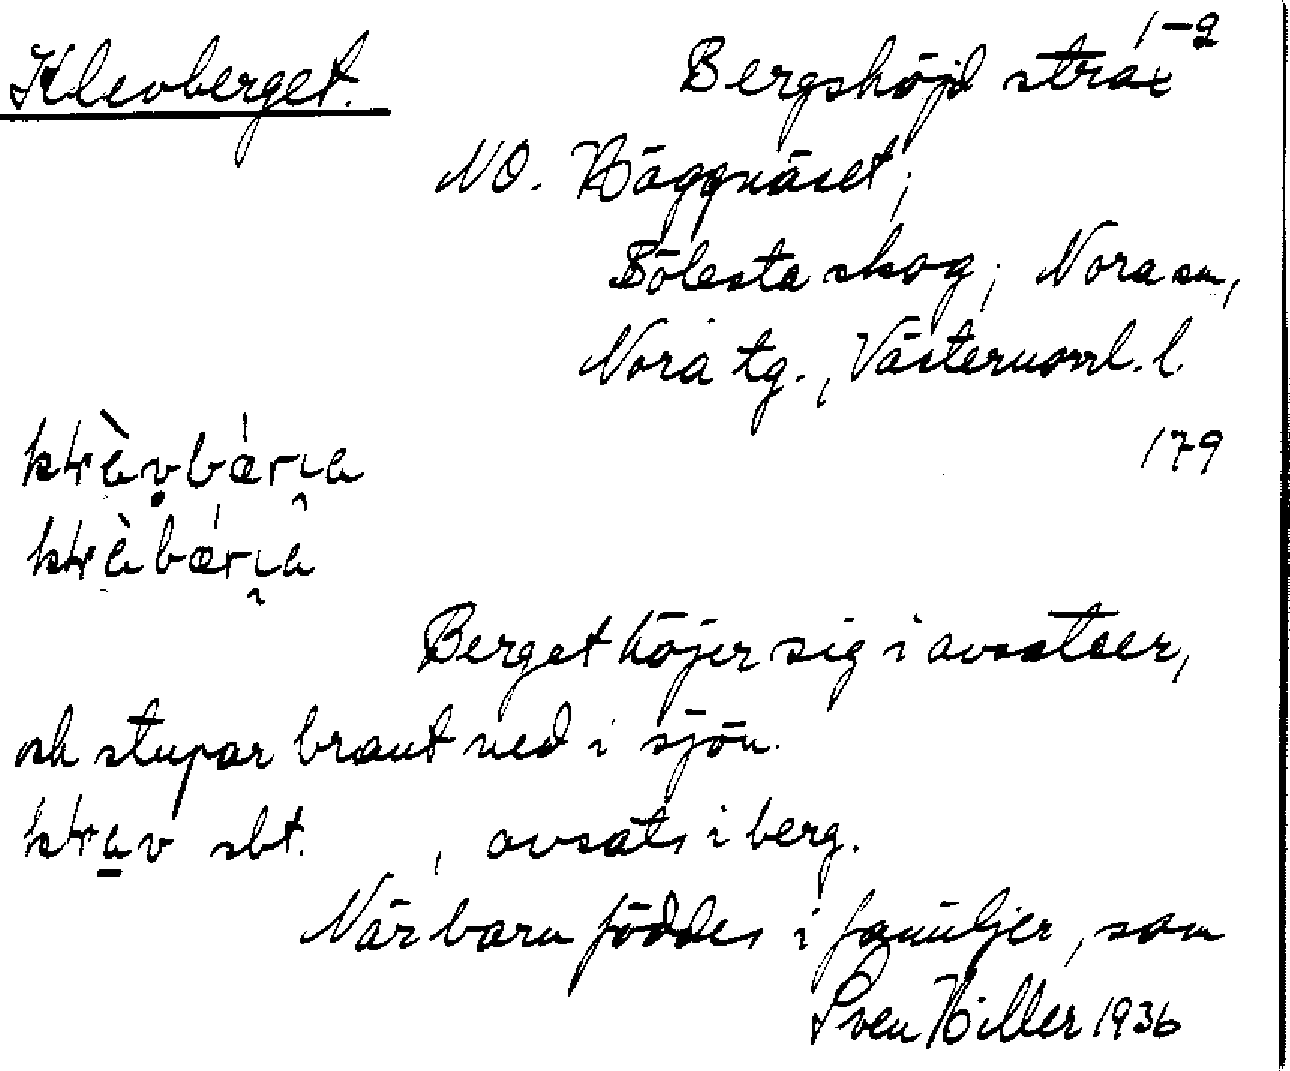 1-2
Klevberget. Bergshöjd strax
NO. Häggnäset,
Bölesta skog, Nora sn,
Nora tg., Västernorrl. l.
179
Berget höjer sig i avsatser,
och stupar brant ned i sjön.
sbt. , avsats i berg.
När barn föddes i familjer, som
Sven Hiller 1936